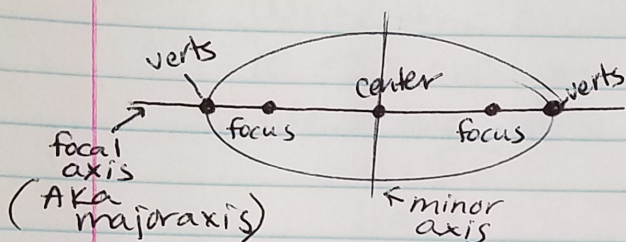 verts
center
verts
focus
focus
focal
axis
(AKA
major axis)
minor
axis